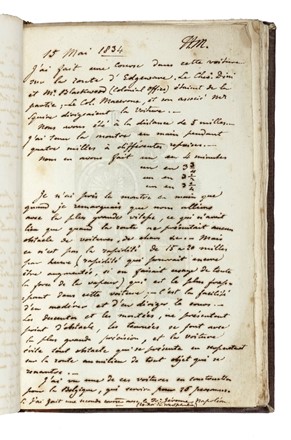 15 Mai 1834
J'ai fait une course dans cette voiture
sur la route d'Edgeware. Le Chev.
et Mr Blackwood (Colonial Office) étaient de la
partie. Le Col. Macerone, et un associé Mr
Squire dirigeaient la voiture.
Nous avons été à la distance de 5 milles.
J'ai tenu la montre en main pendant
quatre milles à différentes reprises.
Nous en avons fait un en 4 minutes
un en 3
un en 3
en 3
Je n'ai pris la montre en main que
quand je remarquais que nous allions
avec la plus grande vitesse, ce qui n'avait
lieu que quand la route ne présentait aucun
obstacle de voitures, de chars &c. Mais
ce n'est pas la rapidité de 15 à 20 milles
par heure (rapidité qui pourrait encore
être augmentée, si on faisait usage de toute
la force de la vapeur) qui est le plus
dans cette voiture, c'est la facilité
d'en modérer et d'en diriger la course.
les descentes et les montées, ne présentent
point d'obstacle, les tournées se font avec
la plus grande précision, et la voiture
évite tout obstacle qui se présente
la route au milieu de tout objet qui se
rencontre.
J'ai vu une de ces voitures
pour la Belgique, qui
J'ai fait une seconde course avec le Pr. Jérome Napoléon